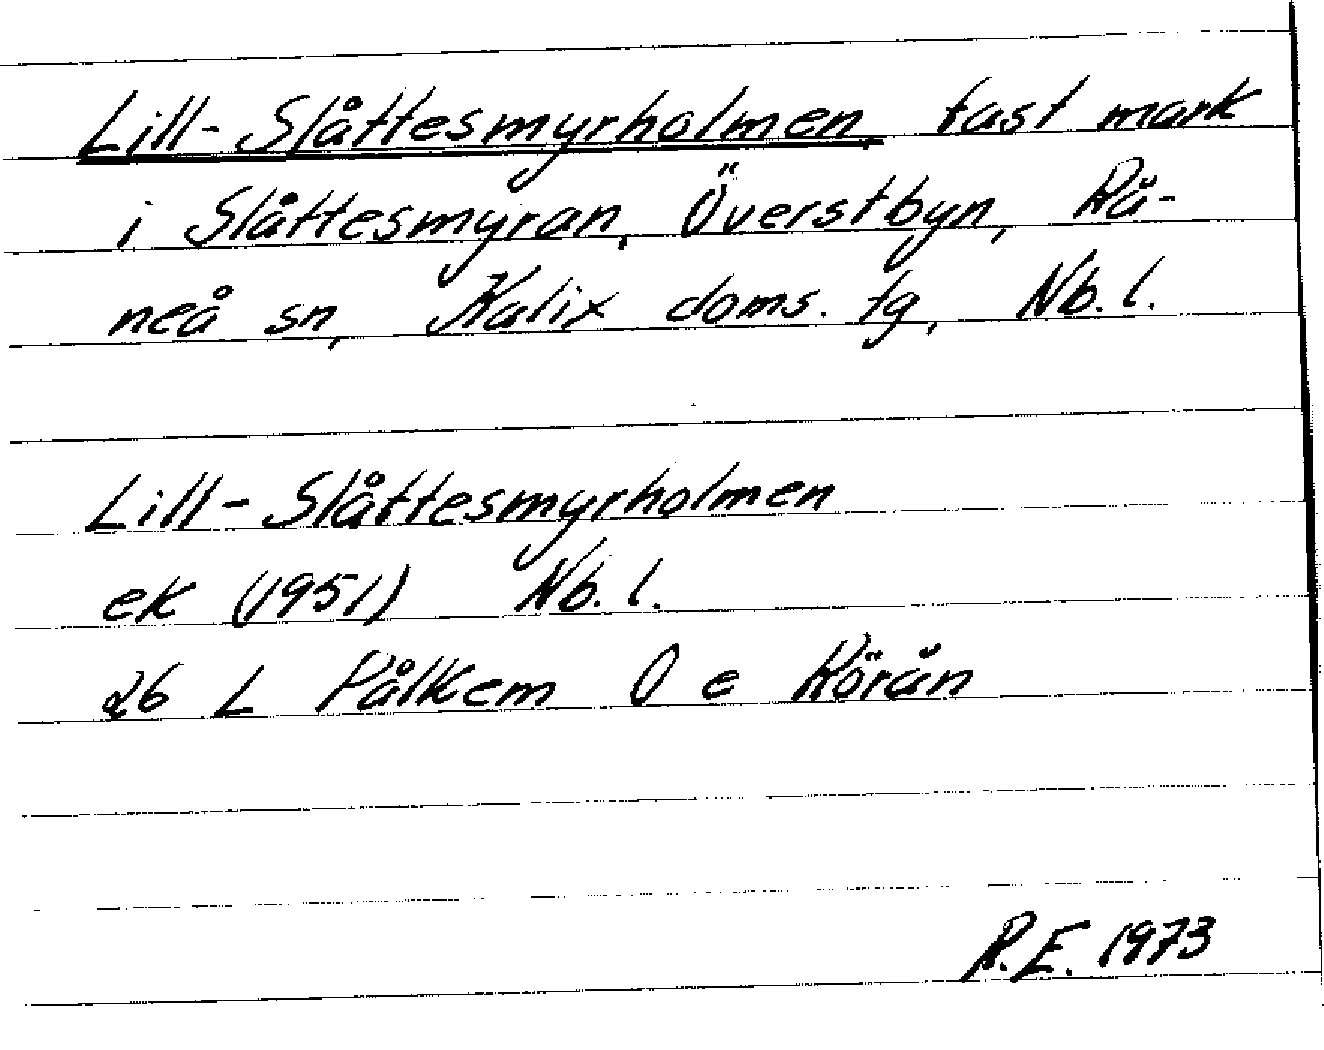 Lill-Slåttesmyrholmen, fast mark
i Slåttesmyran, Överstbyn, Rå-
neå sn, Kalix doms. tg, Nb. l.
Lill-Slåttesmyrholmen
ek (1951) Nb. l.
26 L Pålkem O e Rörån
R.E. 1973